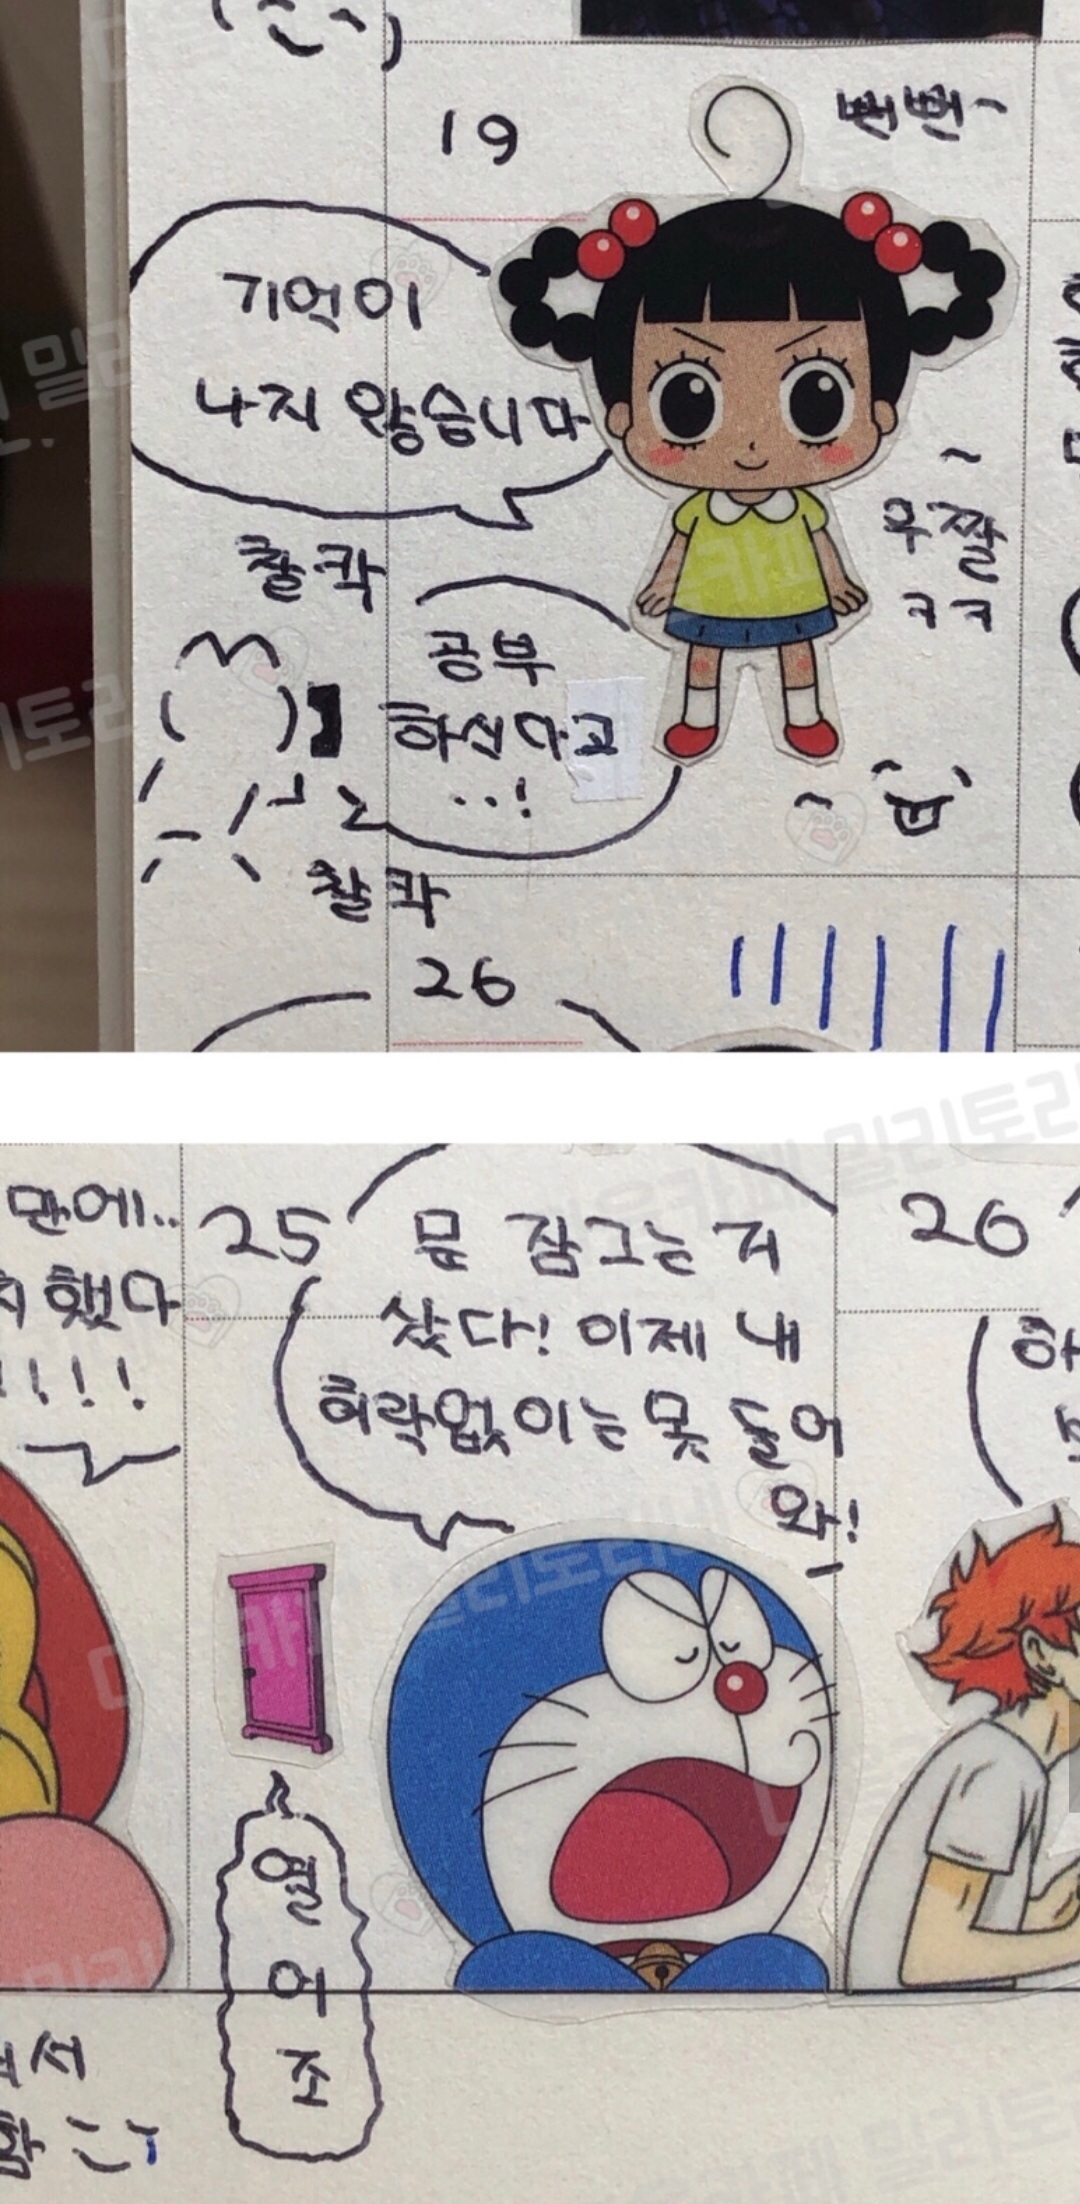 19
뻔뻔~
기억이
나지 않습니다
찰칵
~
우쭐
ㅋㅋ
공부
하신다고
..!
찰칵
26
만에..
했다
!!!!
25
문 잠그는 거
샀다! 이제 내
허락없이는 못 들어
와!
26
열
어
조
서